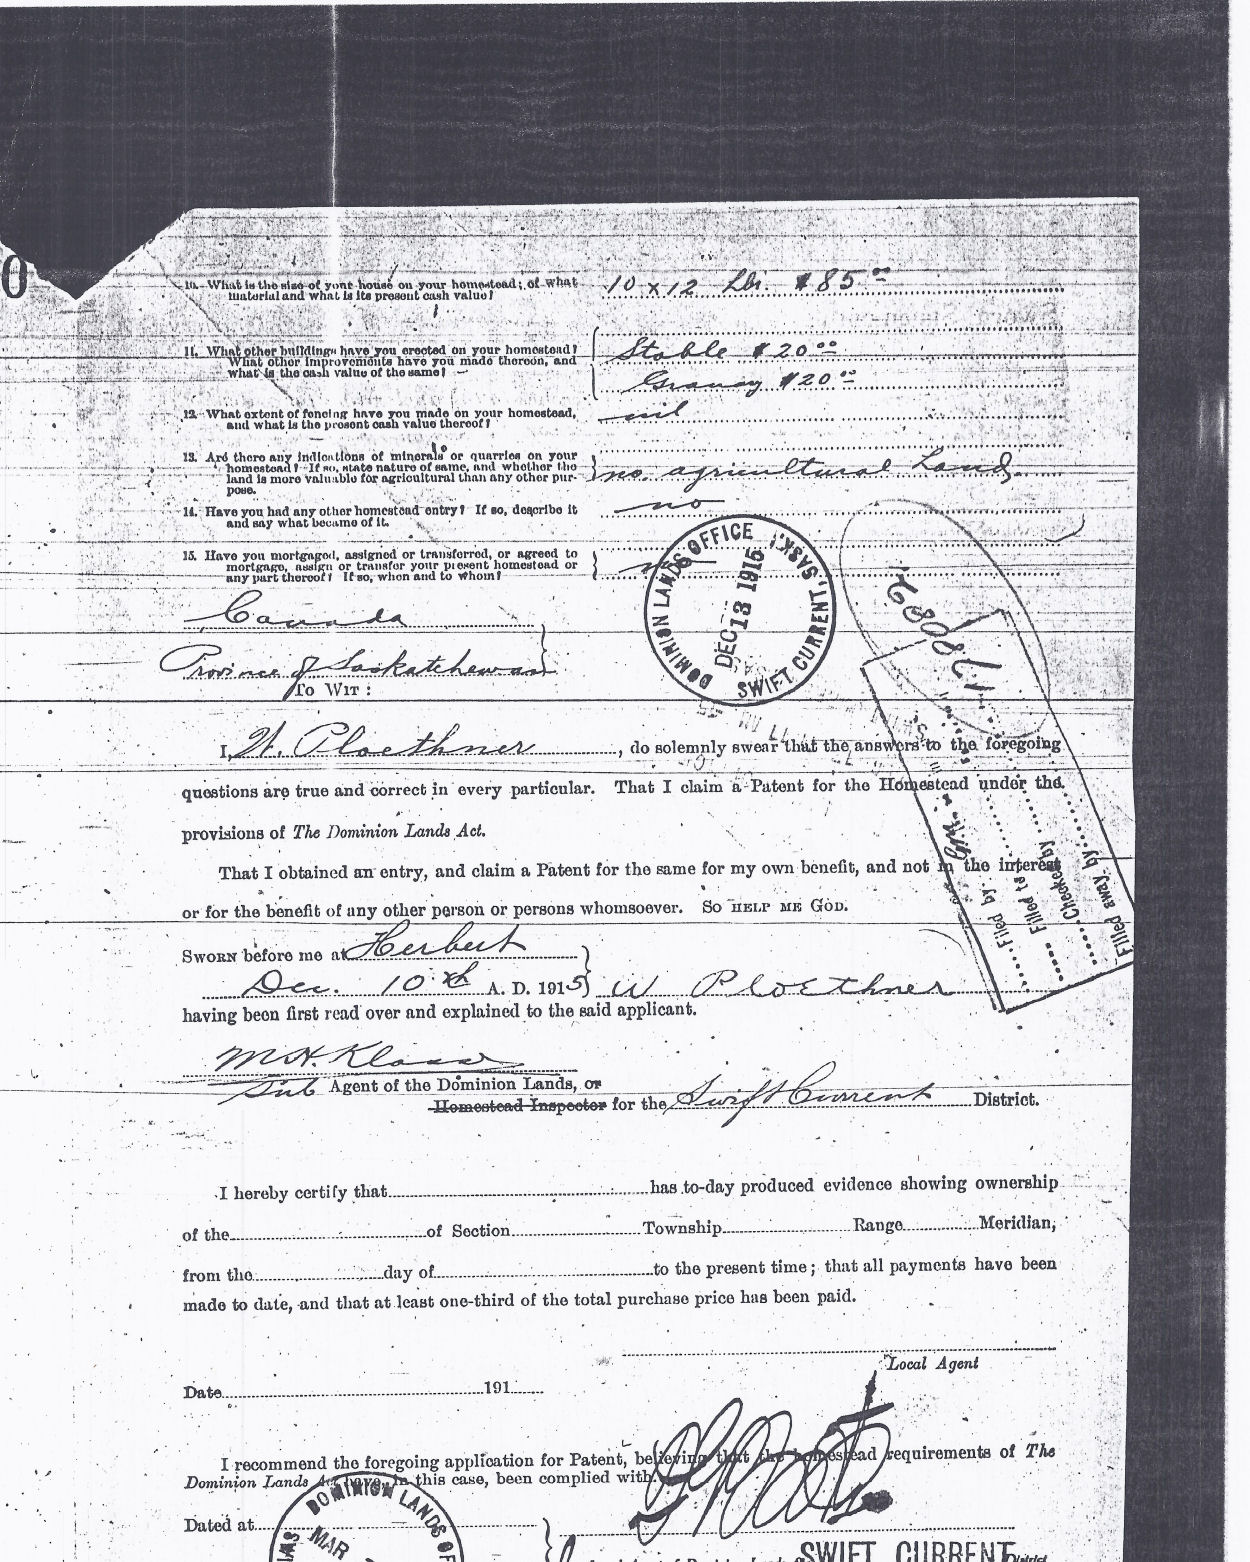 10. What is the size of your house on your homestead; of what
material and what is its present cash value?
10 x 12 Lbr. $85.00
11. What other buildings have you erected on your homestead?
What other improvements have you made thereon, and
what is the cash value of the same?
Stable $20.00
Granary $20.00
12. What extent of fencing have you made on your homestead,
and what is the present cash value thereof?
nil
13. Are there any indications of minerals or quarries on your
homestead? If so, state nature of same, and whether the
land is more valuable for agricultural than any other pur-
pose.
no agricultural Land.
14. Have you had any other homestead entry? If so, describe it
and say what became of it.
no
15. Have you mortgaged, assigned or transferred, or agreed to
mortgage, assign or transfer your present homestead or
any part thereof? If so, when and to whom?
DOMINION LANDS OFFICE
DEC 13 1915
SWIFT CURRENT, SASK.
Canada
Province of Saskatchewan
TO WIT:
I, W. Ploethner, do solemnly swear that the answers to the foregoing
questions are true and correct in every particular. That I claim a Patent for the Homestead under the
provisions of The Dominion Lands Act.
That I obtained an entry, and claim a Patent for the same for my own benefit, and not in the interest
or for the benefit of any other person or persons whomsoever. SO HELP ME GOD.
SWORN before me at Herbert
Dec. 10th A. D. 1915 W Ploethner
having been first read over and explained to the said applicant.
M.H. Klassen
Sub Agent of the Dominion Lands, or
Homestead Inspector for the Swift Current District.
Filed by
Filed to
Checked by
Filed away by
I hereby certify that has to-day produced evidence showing ownership
of the of Section Township Range Meridian,
from the day of to the present time; that all payments have been
made to date, and that at least one-third of the total purchase price has been paid.
Local Agent
Date 191
I recommend the foregoing application for Patent, believing that the homestead requirements of The
Dominion Lands Act have, in this case, been complied with.
DOMINION LANDS OF
MAR
Dated at
SWIFT CURRENT District